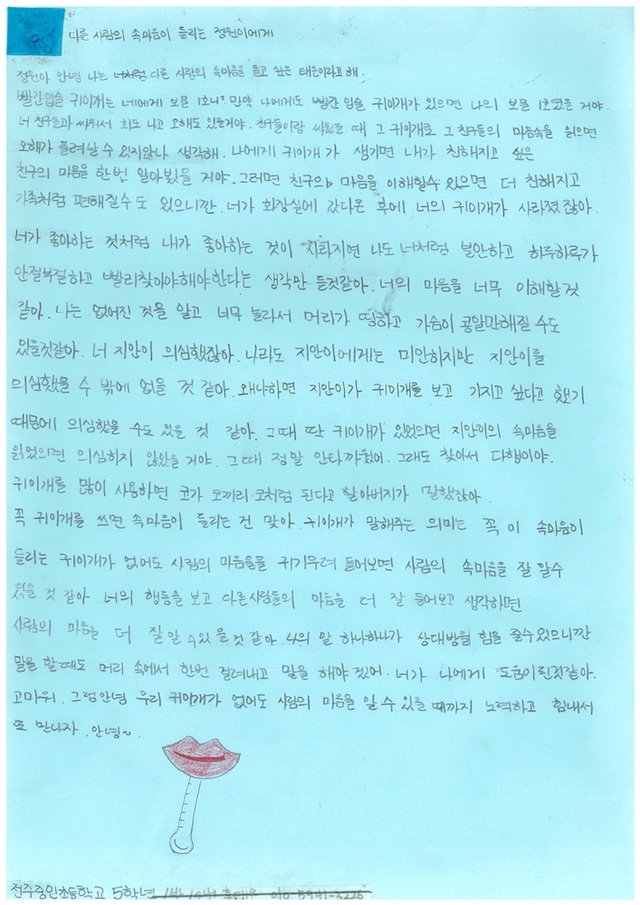 다른 사람의 속마음이 들리는 정원이에게
정원아 안녕 나는 너처럼 다른 사람의 속마음을 듣고 싶은 태은이라고 해.
빨간입술 귀이개는 네에게 보물 1호니? 만약 나에게도 빨간 입술 귀이개가 있으면 나의 보물 1호였을 거야.
너 친구들과 싸워서 화도 나고 오해도 있을거야. 친구들이랑 싸웠을 때 그 귀이개로 그 친구들의 마음속을 읽으면
오해가 풀려날 수 있지않나 생각해. 나에게 귀이개가 생기면 내가 친해지고 싶은
친구의 마음을 한번 알아봤을 거야. 그러면 친구의 마음을 이해할수 있으면 더 친해지고
가족처럼 편해질수도 있으니깐. 너가 화장실에 갔다온 후에 너의 귀이개가 사라졌잖아.
너가 좋아하는 것처럼 내가 좋아하는 것이 사라지면 나도 너처럼 불안하고 하루하루가
안절부절하고 빨리찾아야해야한다는 생각만 들것같아. 너의 마음을 너무 이해할것
같아. 나는 없어진 것을 알고 너무 놀라서 머리가 띵하고 가슴이 콩알만해질 수도
있을것같아. 너 지안이 의심했잖아. 나라도 지안이에게는 미안하지만 지안이를
의심했을 수 밖에 없을 것 같아. 왜냐하면 지안이가 귀이개를 보고 가지고 싶다고 했기
때문에 의심했을 수도 있을 것 같아. 그때 딱 귀이개가 있었으면 지안이의 속마음을
읽었으면 의심하지 않았을 거야. 그때 정말 안타까웠어. 그래도 찾아서 다행이야.
귀이개를 많이 사용하면 코가 코끼리 코처럼 된다고 할아버지가 말했잖아.
꼭 귀이개를 쓰면 속마음이 들리는 건 맞아 귀이개가 말해주는 의미는 꼭 이 속마음이
들리는 귀이개가 없어도 사람의 마음을 귀기우려 들어보면 사람의 속마음을 잘 알수
있을 것 같아. 너의 행동을 보고 다른사람들의 마음을 더 잘 들어보고 생각하면
사람의 마음을 더 잘알 수있을것 같아. 나의 말 하나하나가 상대방을 힘을 줄수있으니깐
말을 할때도 머리 속에서 한번 걸려내고 말을 해야겠어. 너가 나에게 도움이된것같아.
고마워. 그럼안녕 우리 귀이개가 없어도 사람의 마음을 알 수 있을 때까지 노력하고 힘내서
또 만나자. 안녕~
전주중인초등학교 5학년